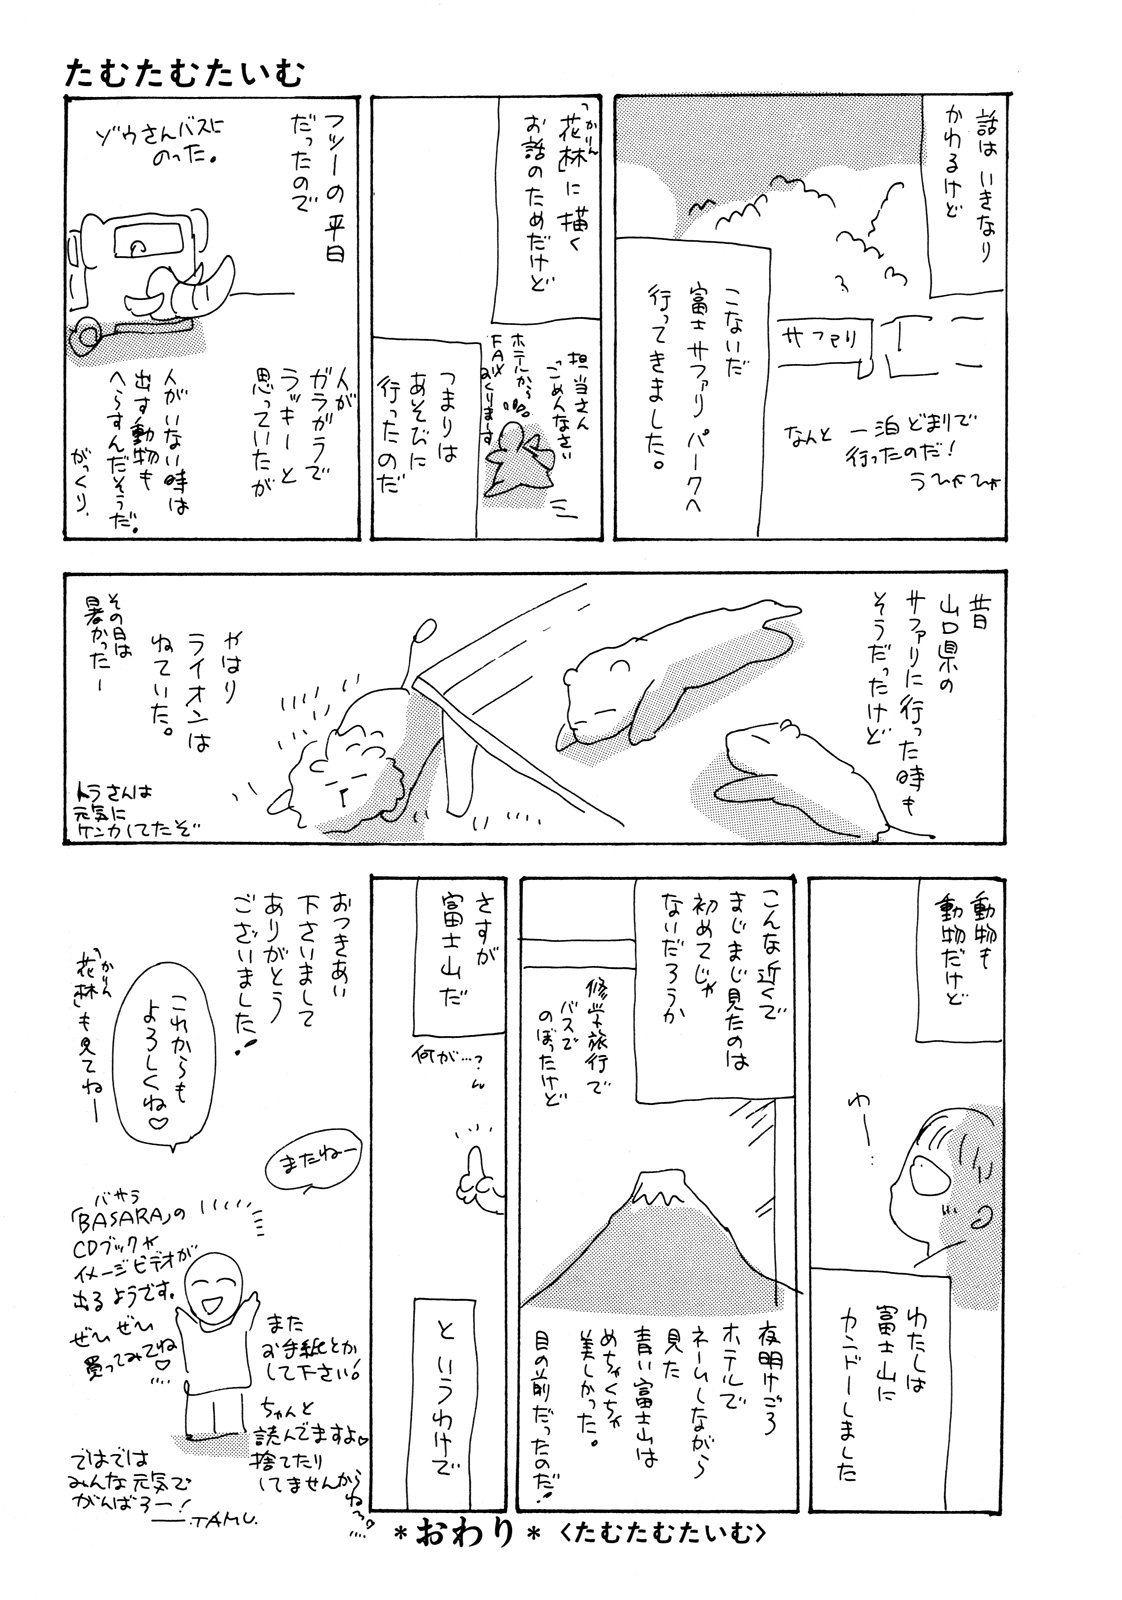 たむたむたいむ
話は いきなり
かわるけど
こないだ
富士 サファリ パークへ
行ってきました。
サファリ
なんと 一泊 どまりで
行ったのだ!
うひゃひゃ
「花林」に描く
かりん
お話のためだけど
担当さん
ごめんなさい
ホテルから
FAX おくります
つまりは
あそびに
行ったのだ
フツーの平日
だったので
ゾウさんバスに
のった。
人が
ガラガラで
ラッキーと
思っていたが
人がいない時は
出す動物も
へらすんだそうだ。
がっくり.
昔
山口県の
サファリに行った時も
そうだったけど
やはり
ライオンは
ねていた。
その日は
暑かったー
トラさんは
元気に
ケンカしてたぞ
動物も
動物だけど
わー…
わたしは
富士山に
カンドーしました
こんな近くで
まじまじ見たのは
初めてじゃ
ないだろうか
修学旅行で
バスで
のぼったけど
夜明けごろ
ホテルで
ネームしながら
見た
青い富士山は
めちゃくちゃ
美しかった。
目の前だったのだ!
さすが
富士山だ
何が…?
というわけで
おつきあい
下さいまして
ありがとう
ございました!
これからも
よろしくね♡
「花林」も見てねー
かりん
またねー
バサラ
「BASARA」の
CDブックや
イメージビデオが
出るようです。
ぜひぜひ
買ってみてね♡
また
お手紙とか
して下さい!
ちゃんと
読んでますよ♡
捨てたり
してませんから
ね〜
ではでは
みんな元気で
がんばろー!
—.TAMU.
*おわり* 〈たむたむたいむ〉